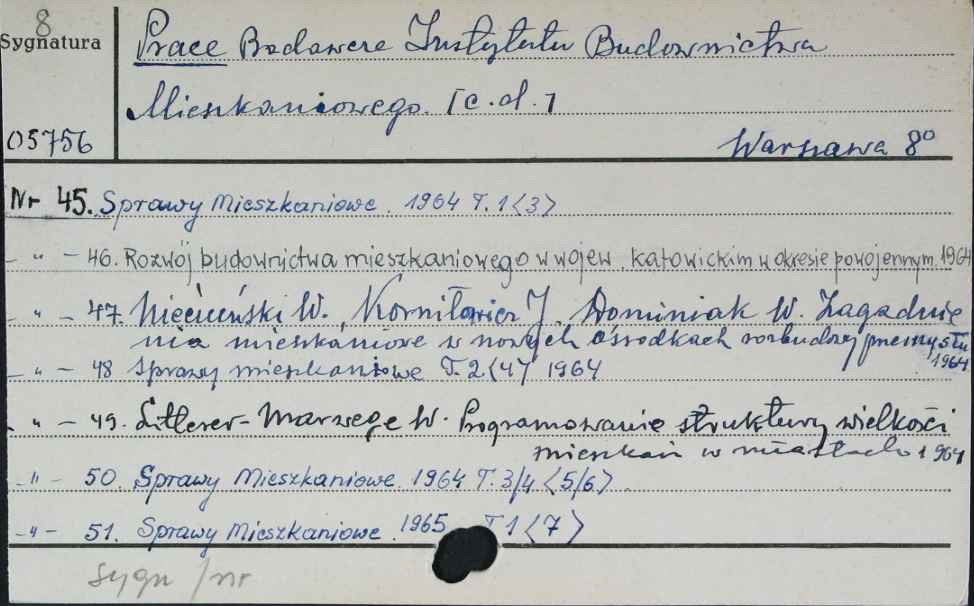 8
Sygnatura
Prace Badawcze Instytutu Budownictwa
Mieszkaniowego. [c.d.]
05756
Warszawa 8°
Nr 45. Sprawy Mieszkaniowe. 1964 T. 1<3>
- " - 46. Rozwój budownictwa mieszkaniowego w wojew. katowickim w okresie powojennym. 1964
- " - 47. Nieciuński W., Korniłowicz J., Dominiak W. Zagadnie
nia mieszkaniowe w nowych ośrodkach rozbudowy przemysłu
1964
- " - 48 Sprawy mieszkaniowe T. 2<4> 1964
- " - 49. Litterer-Marwege W. Programowanie struktury wielkości
mieszkań w miastach 1964
- " - 50. Sprawy Mieszkaniowe. 1964 T. 3/4 <5/6>
- " - 51. Sprawy Mieszkaniowe. 1965 T 1 <7>
sygn / nr